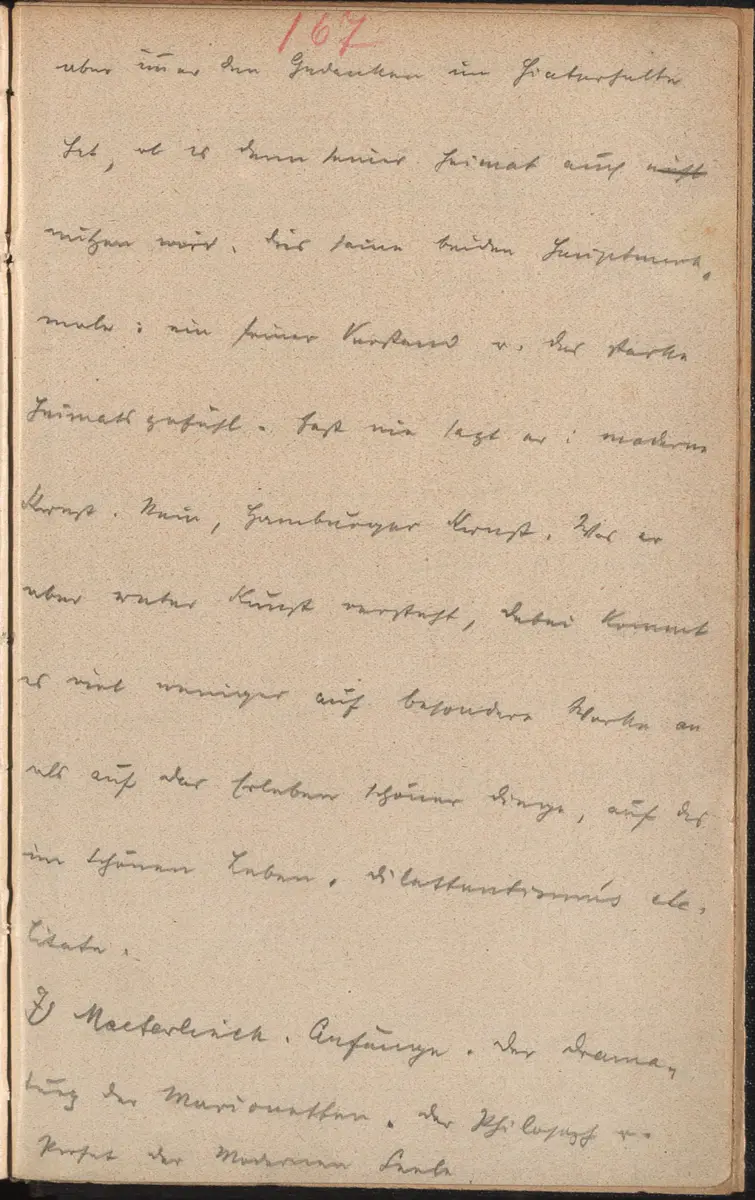 167
aber im̅er den Gedanken im Hinterhalte
hat, ob es denn seiner Heimat auch nicht
nützen wird. Dies seine beiden Hauptmerk-
male: ein feiner Verstand u. das starke
Heimatsgefühl. Fast nie sagt er: moderne
Kunst. Nein, Hamburger Kunst. Was er
aber unter Kunst versteht, dabei kommt
es viel weniger auf besondere Werke an
als auf das Erleben schöner Dinge, auf das
im schönen Leben. Dilettantismus etc.
Citate.
7) Maeterlinck. Anfänge. Der Drama-
turg der Marionetten. Der Philosoph u.
Poet der Modernen Seele